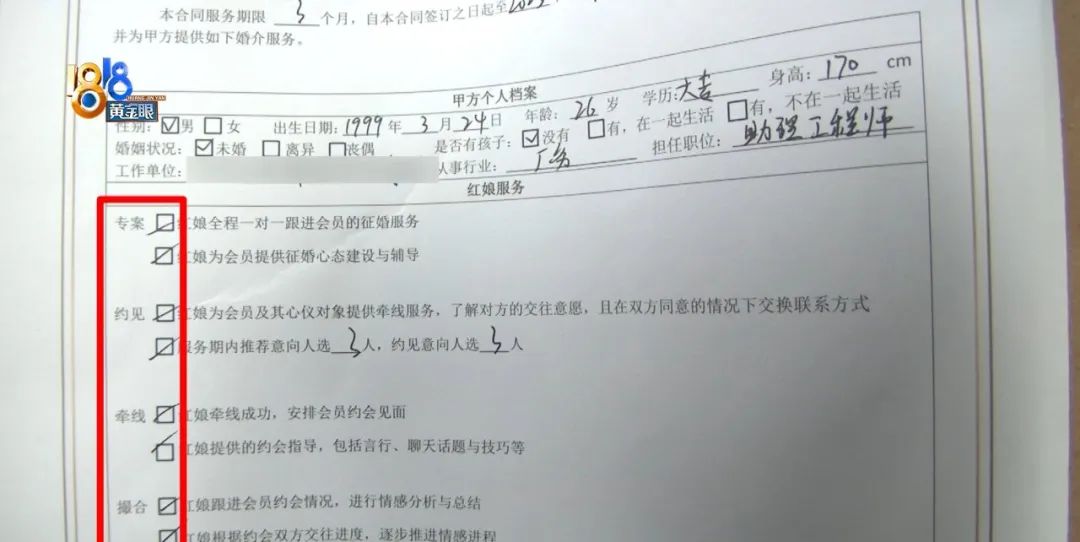 本合同服务期限 3 个月，自本合同签订之日起至202
并为甲方提供如下婚介服务。
1818
黄金眼
甲方个人档案
性别：☑男 □女 出生日期：1999 年 3 月 24 日 年龄：26 岁 学历：大专 身高：170 cm
婚姻状况：☑未婚 □离异 □丧偶 是否有孩子：☑没有 □有，在一起生活 □有，不在一起生活
工作单位： 从事行业： 担任职位：助理工程师
红娘服务
专案 ☑红娘全程一对一跟进会员的征婚服务
☑红娘为会员提供征婚心态建设与辅导
约见 ☑红娘为会员及其心仪对象提供牵线服务，了解对方的交往意愿，且在双方同意的情况下交换联系方式
☑服务期内推荐意向人选 3 人，约见意向人选 3 人
牵线 ☑红娘牵线成功，安排会员约会见面
☑红娘提供的约会指导，包括言行、聊天话题与技巧等
撮合 ☑红娘跟进会员约会情况，进行情感分析与总结
☑红娘根据约会双方交往进度，逐步推进情感进程